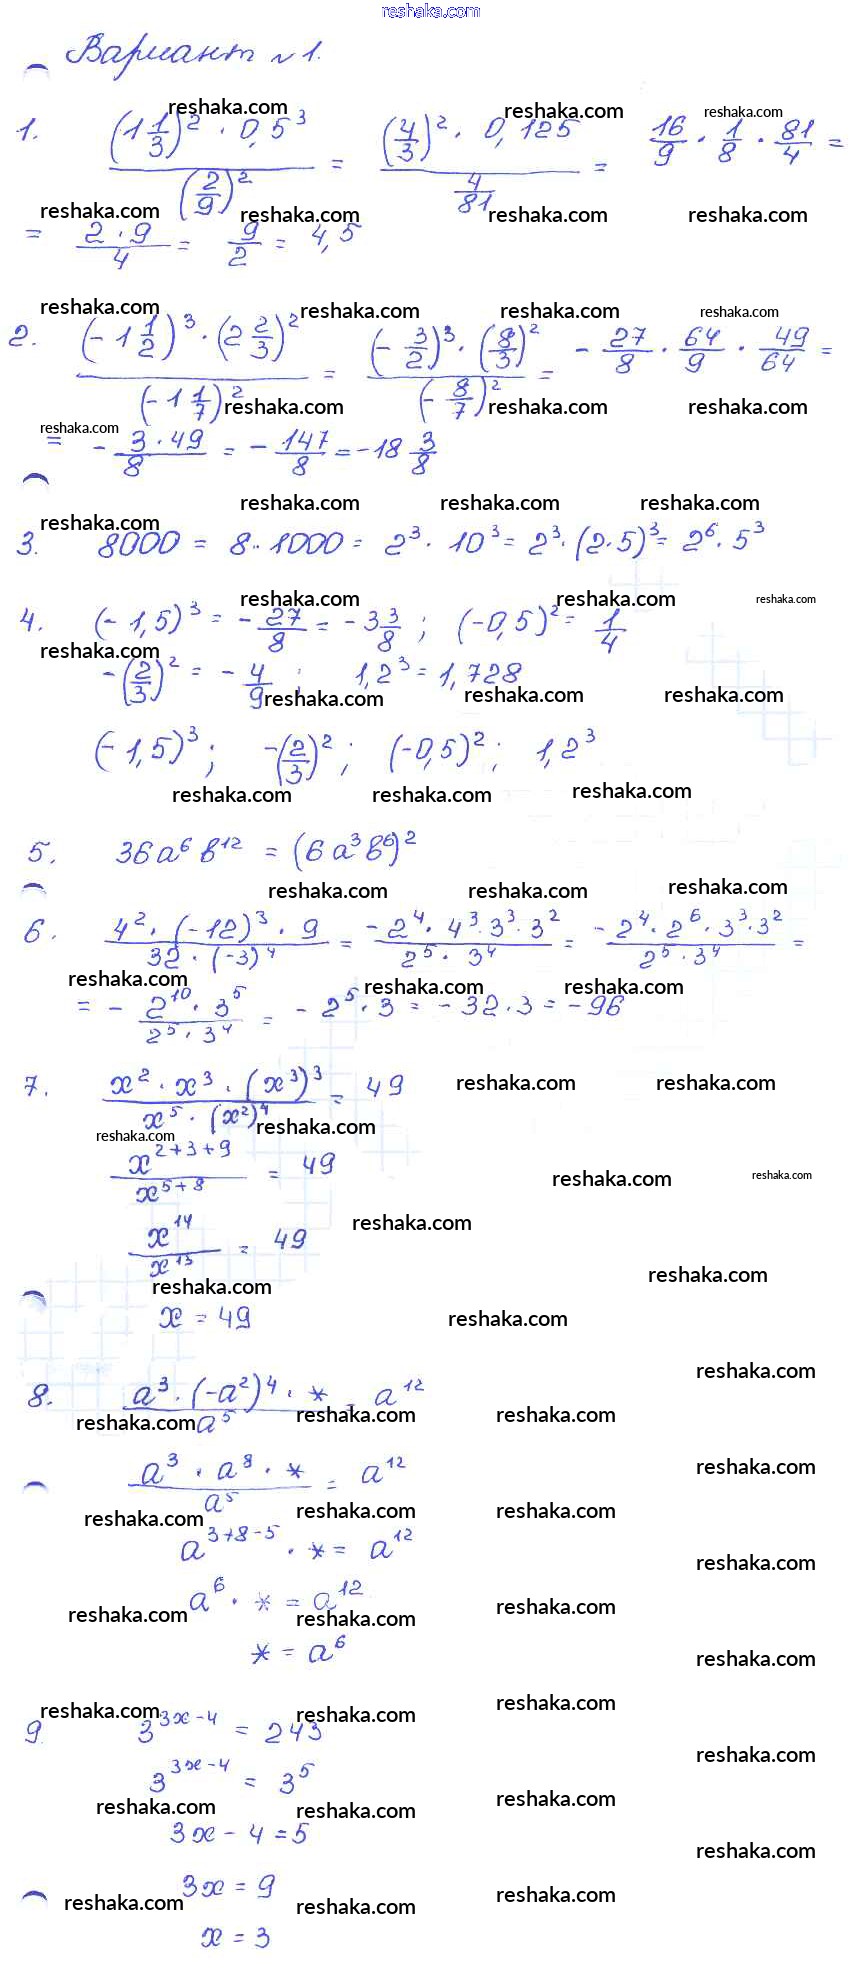 reshaka.com
Вариант №1.
1. (1 1/3)^2 · 0,5^3 / (2/9)^2 = (4/3)^2 · 0,125 / (4/81) = 16/9 · 1/8 · 81/4 =
= 2·9/4 = 9/2 = 4,5
2. (-1 1/2)^3 · (2 2/3)^2 / (-1 1/7)^2 = (-3/2)^3 · (8/3)^2 / (-8/7)^2 = - 27/8 · 64/9 · 49/64 =
= - 3·49/8 = - 147/8 = -18 3/8
3. 8000 = 8·1000 = 2^3 · 10^3 = 2^3 · (2·5)^3 = 2^6 · 5^3
4. (-1,5)^3 = - 27/8 = -3 3/8 ; (-0,5)^2 = 1/4
-(2/3)^2 = - 4/9 ; 1,2^3 = 1,728
(-1,5)^3 ; -(2/3)^2 ; (-0,5)^2 ; 1,2^3
5. 36a^6 b^12 = (6a^3 b^6)^2
6. 4^2 · (-12)^3 · 9 / 32 · (-3)^4 = -2^4 · 4^3 · 3^3 · 3^2 / 2^5 · 3^4 = -2^4 · 2^6 · 3^3 · 3^2 / 2^5 · 3^4 =
= - 2^10 · 3^5 / 2^5 · 3^4 = - 2^5 · 3 = - 32 · 3 = -96
7. x^2 · x^3 · (x^3)^3 / x^5 · (x^2)^4 = 49
x^(2+3+9) / x^(5+8) = 49
x^14 / x^13 = 49
x = 49
8. a^3 · (-a^2)^4 · * / a^5 = a^12
a^3 · a^8 · * / a^5 = a^12
a^(3+8-5) · * = a^12
a^6 · * = a^12
* = a^6
9. 3^(3x-4) = 243
3^(3x-4) = 3^5
3x - 4 = 5
3x = 9
x = 3